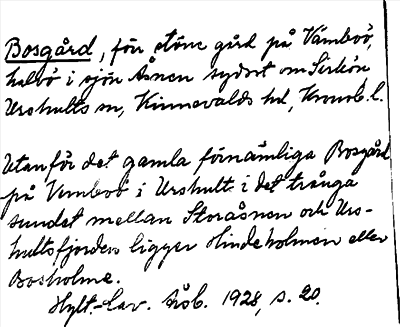 Bosgård, för större gård på Vämboö,
halvö i sjön Åsnen sydost om Sirkön
Urshults sn, Kinnevalds hd, Kronob. l.
Utanför det gamla förnämliga Bosgård
på Vemboö i Urshult i det trånga
sundet mellan Storåsnen och Urs-
hultsfjorden ligger Hindeholmen eller
Bosholme.
Hylt.-Cav. Årsb. 1928, s. 20.